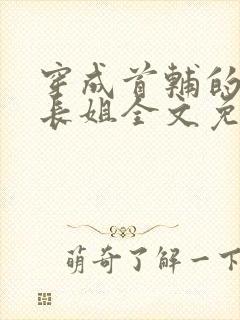 穿成首辅的
长姐全文免
萌奇了解一下